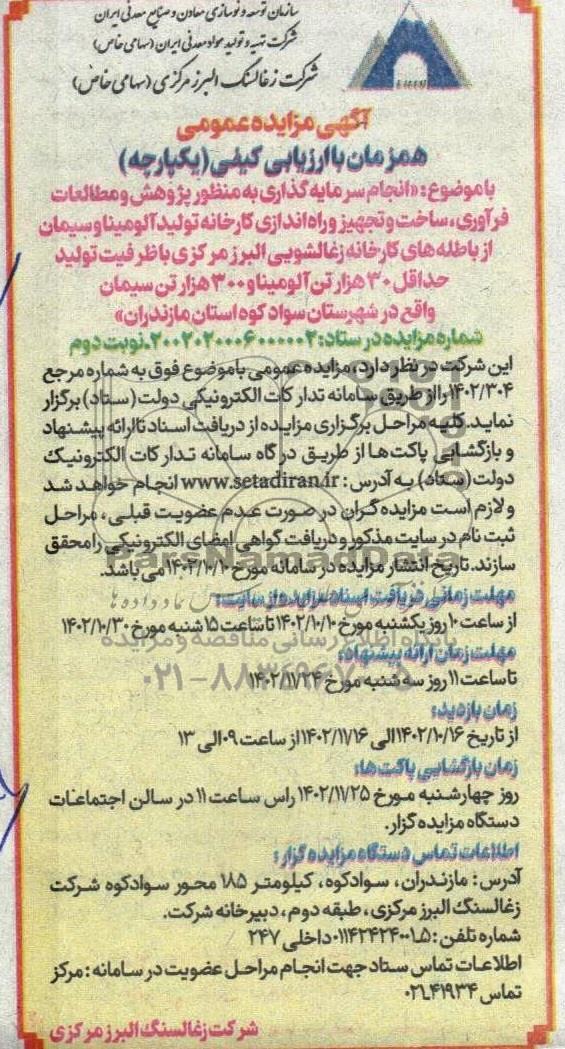 سازمان توسعه و نوسازی معادن و صنایع معدنی ایران
شرکت تهیه و تولید مواد معدنی ایران (سهامی خاص)
شرکت زغالسنگ البرز مرکزی (سهامی خاص)
آگهی مزایده عمومی
همزمان با ارزیابی کیفی (یکپارچه)
با موضوع: «انجام سرمایه گذاری به منظور پژوهش و مطالعات
فرآوری، ساخت و تجهیز و راه اندازی کارخانه تولید آلومینا و سیمان
از باطله های کارخانه زغالشویی البرز مرکزی با ظرفیت تولید
حداقل ۳۰ هزار تن آلومینا و ۳۰۰ هزار تن سیمان
واقع در شهرستان سوادکوه استان مازندران»
شماره مزایده در ستاد: ۲۰۰۲۰۲۰۰۰۶۰۰۰۰۰۲.نوبت دوم
این شرکت در نظر دارد، مزایده عمومی با موضوع فوق به شماره مرجع
۱۴۰۲/۳۰۴ را از طریق سامانه تدارکات الکترونیکی دولت (ستاد) برگزار
نماید. کلیه مراحل برگزاری مزایده از دریافت اسناد تا ارائه پیشنهاد
و بازگشایی پاکت ها از طریق درگاه سامانه تدارکات الکترونیک
دولت (ستاد) به آدرس: www.setadiran.ir انجام خواهد شد
و لازم است مزایده گران در صورت عدم عضویت قبلی، مراحل
ثبت نام در سایت مذکور و دریافت گواهی امضای الکترونیکی را محقق
سازند. تاریخ انتشار مزایده در سامانه مورخ ۱۴۰۲/۱۰/۱۰ می باشد.
مهلت زمانی دریافت اسناد مزایده از سایت:
از ساعت ۱۰ روز یکشنبه مورخ ۱۴۰۲/۱۰/۱۰ تا ساعت ۱۵ شنبه مورخ ۱۴۰۲/۱۰/۳۰
مهلت زمان ارائه پیشنهاد:
تا ساعت ۱۱ روز سه شنبه مورخ ۱۴۰۲/۱۱/۲۴
زمان بازدید:
از تاریخ ۱۴۰۲/۱۰/۱۶ الی ۱۴۰۲/۱۱/۱۶ از ساعت ۰۹ الی ۱۳
زمان بازگشایی پاکت ها:
روز چهارشنبه مورخ ۱۴۰۲/۱۱/۲۵ راس ساعت ۱۱ در سالن اجتماعات
دستگاه مزایده گزار.
اطلاعات تماس دستگاه مزایده گزار:
آدرس: مازندران، سوادکوه، کیلومتر ۱۸۵ محور سوادکوه شرکت
زغالسنگ البرز مرکزی، طبقه دوم، دبیرخانه شرکت.
شماره تلفن: ۵-۰۱۱۴۲۴۲۴۰۰۱ داخلی ۲۴۷
اطلاعات تماس ستاد جهت انجام مراحل عضویت در سامانه: مرکز
تماس ۴۱۹۳۴-۰۲۱
شرکت زغالسنگ البرز مرکزی
ParsNamadData
پایگاه اطلاع رسانی مناقصه و مزایده